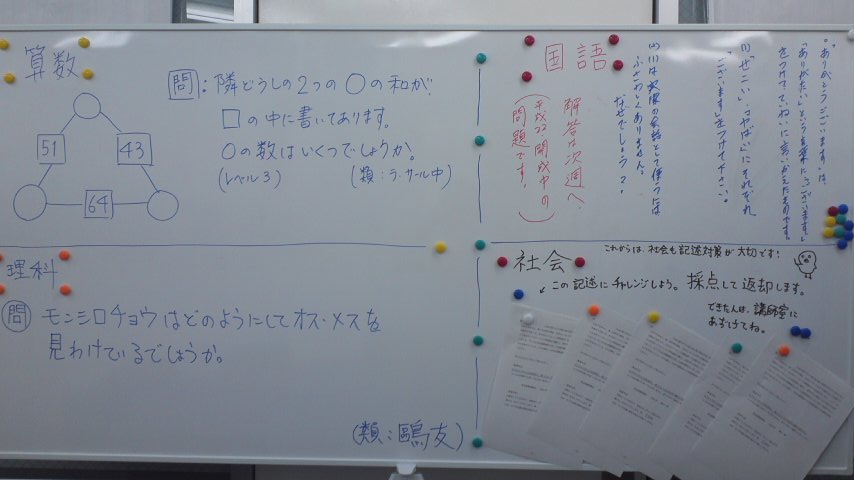 算数
問：隣どうしの2つの〇の和が
□の中に書いてあります。
〇の数はいくつでしょうか。
(レベル3)
(類：ラ・サール中)
51
43
64
国語
。「ありがとうございます」は、
「ありがたい」という言葉に「ございます」
をつけて、ていねいに言いかえたものです。
(1)「すごい」、「やばい」にそれぞれ
「ございます」をつけて下さい。
(2)(1)は実際の会話として使うには
ふさわしくありません。
なぜでしょう？。
解答は次週へ
(平成22開成中の
問題です。)
理科
問 モンシロチョウはどのようにしてオス・メスを
見わけているでしょうか。
(類：鷗友)
これからは、社会も記述対策が大切です!
社会
この記述にチャレンジしよう。採点して返却します。
できた人は、講師室に
あずけてね。